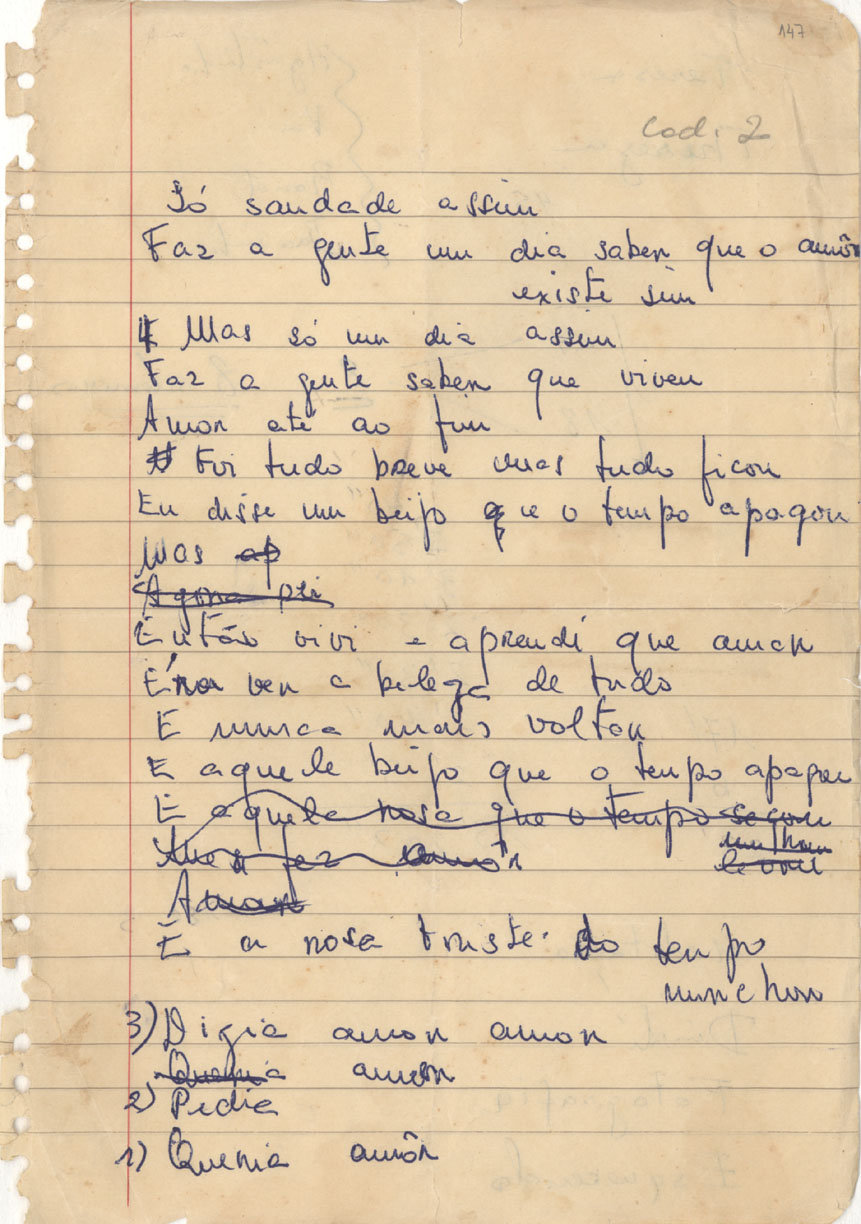 147
Cod. 2
Só saudade assim
Faz a gente um dia saber que o amôr
existe sim
E Mas só um dia assim
Faz a gente saber que viveu
Amor até ao fim
Foi tudo breve mas tudo ficou
Eu disse um beijo que o tempo apagou
Mas ap
Agora
Então vivi e aprendi que amar
É ver a beleza de tudo
E nunca mais voltou
E aquele beijo que o tempo apagou
E aquela rosa que o tempo secou
fez amôr murchou
levou
Amar
E a rosa triste do tempo
murchou
3) Dizia amor amor
Queria amor
2) Pedia
1) Queria amôr